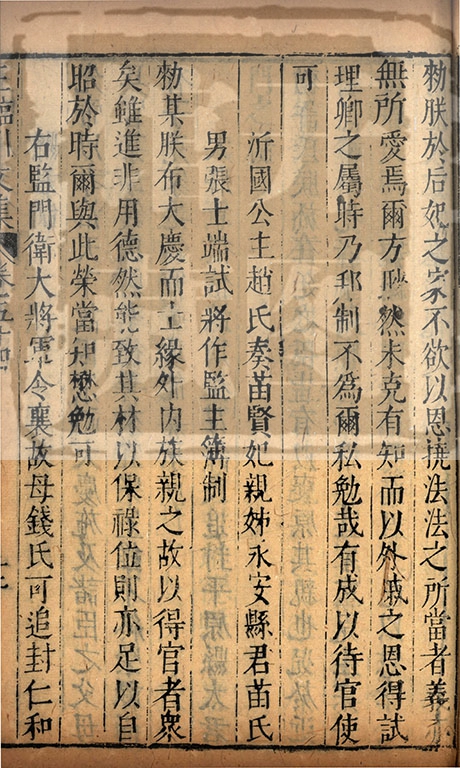 勑朕於后妃之家不欲以恩撓法法之所當者義亦
無所愛焉爾方眇然未克有知而以外戚之恩得試
理卿之屬時乃邦制不為爾私勉哉有成以待官使
可
沂國公主趙氏奏苗賢妃親姊永安縣君苗氏
男張士端試將作監主簿制
勑某朕布大慶而士緣外内族親之故以得官者衆
矣雖進非用德然能致其材以保祿位則亦足以自
昭於時爾與此榮當知懋勉可
右監門衛大將軍令襄故母錢氏可追封仁和
王臨川文集 卷五十四